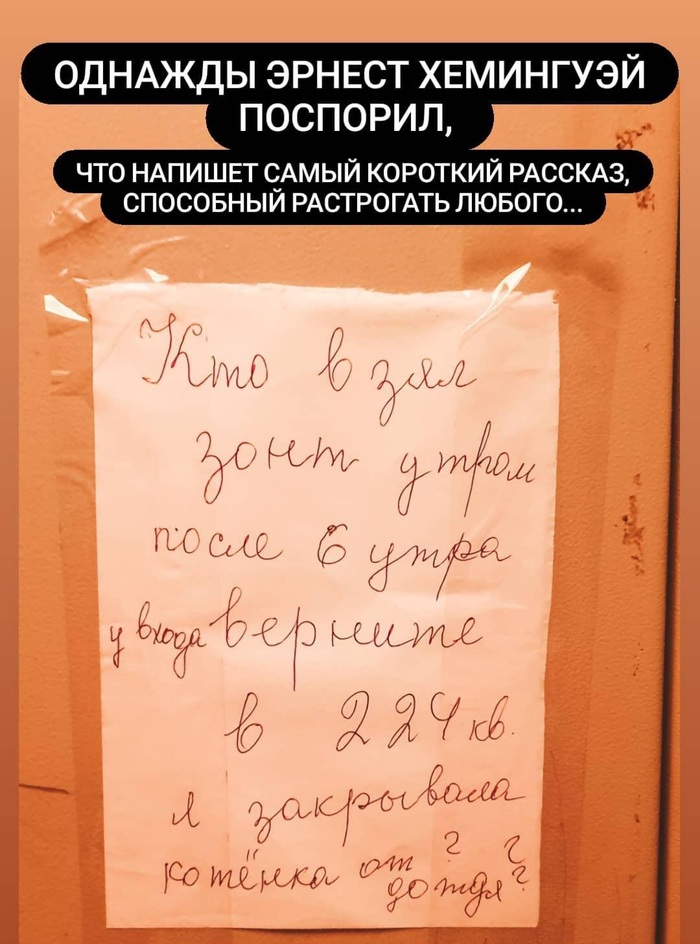 ОДНАЖДЫ ЭРНЕСТ ХЕМИНГУЭЙ
ПОСПОРИЛ,
ЧТО НАПИШЕТ САМЫЙ КОРОТКИЙ РАССКАЗ,
СПОСОБНЫЙ РАСТРОГАТЬ ЛЮБОГО...
Кто взял
зонт утром
после 6 утра
у входа верните
в 224 кв.
я закрывала
котёнка от ? ?
дождя ?